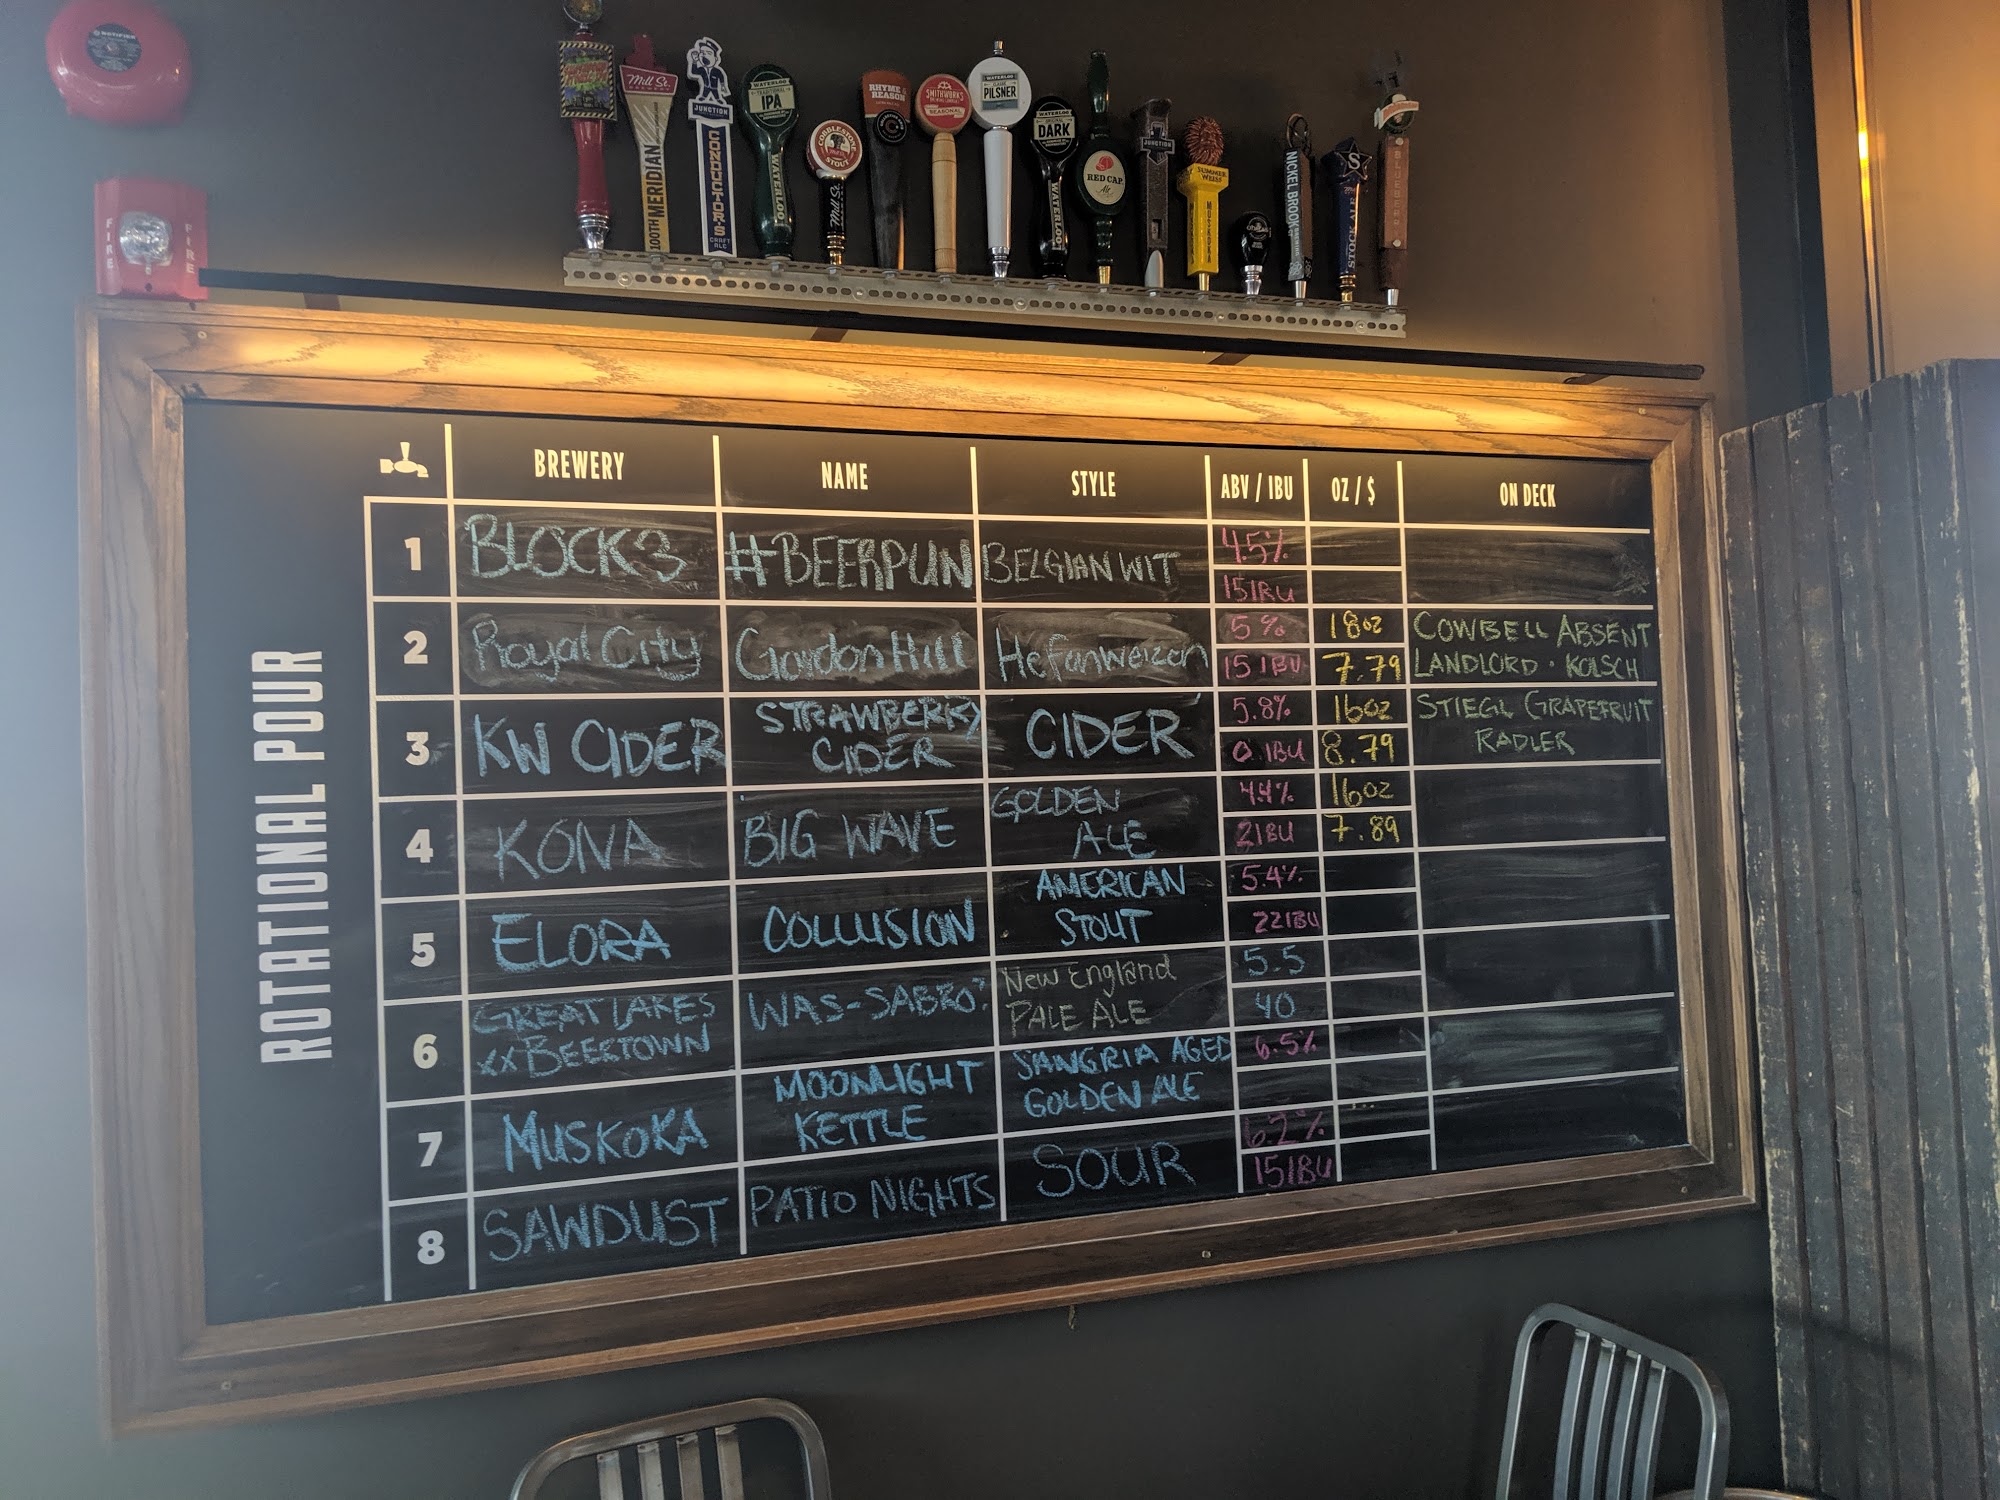 NOTIFIER
FIRE
FIRE
Mill St.
BREWERY
100TH MERIDIAN
JUNCTION
CONDUCTOR'S
CRAFT ALE
WATERLOO
TRADITIONAL
IPA
WATERLOO
COBBLESTONE
STOUT
Mill St.
RHYME &
REASON
SMITHWORKS
SEASONAL
WATERLOO
CLASSIC
PILSNER
WATERLOO
DARK
WATERLOO
RED CAP
Ale
JUNCTION
SUMMER
WEISS
MUSKOKA
NICKEL BROOK
S
STOCK ALE
BLUEBERRY
BREWERY NAME STYLE ABV / IBU OZ / $ ON DECK
ROTATIONAL POUR
1 BLOCK 3 #BEERPUN BELGIAN WIT 4.5%
15 IBU
2 Royal City Gordon Hill Hefanweizen 5% 18oz COWBELL ABSENT
15 IBU 7.79 LANDLORD · KOLSCH
3 KW CIDER STRAWBERRY
CIDER CIDER 5.8% 16oz STIEGL GRAPEFRUIT
0 IBU 8.79 RADLER
4 KONA BIG WAVE GOLDEN
ALE 4.4% 16oz
21BU 7.89
5 ELORA COLLUSION AMERICAN
STOUT 5.4%
22IBU
6 GREAT LAKES
xx BEERTOWN WAS-SABRO? New England
PALE ALE 5.5
40
7 MUSKOKA MOONLIGHT
KETTLE SANGRIA AGED
GOLDEN ALE 6.5%
8 SAWDUST PATIO NIGHTS SOUR 6.2%
15IBU